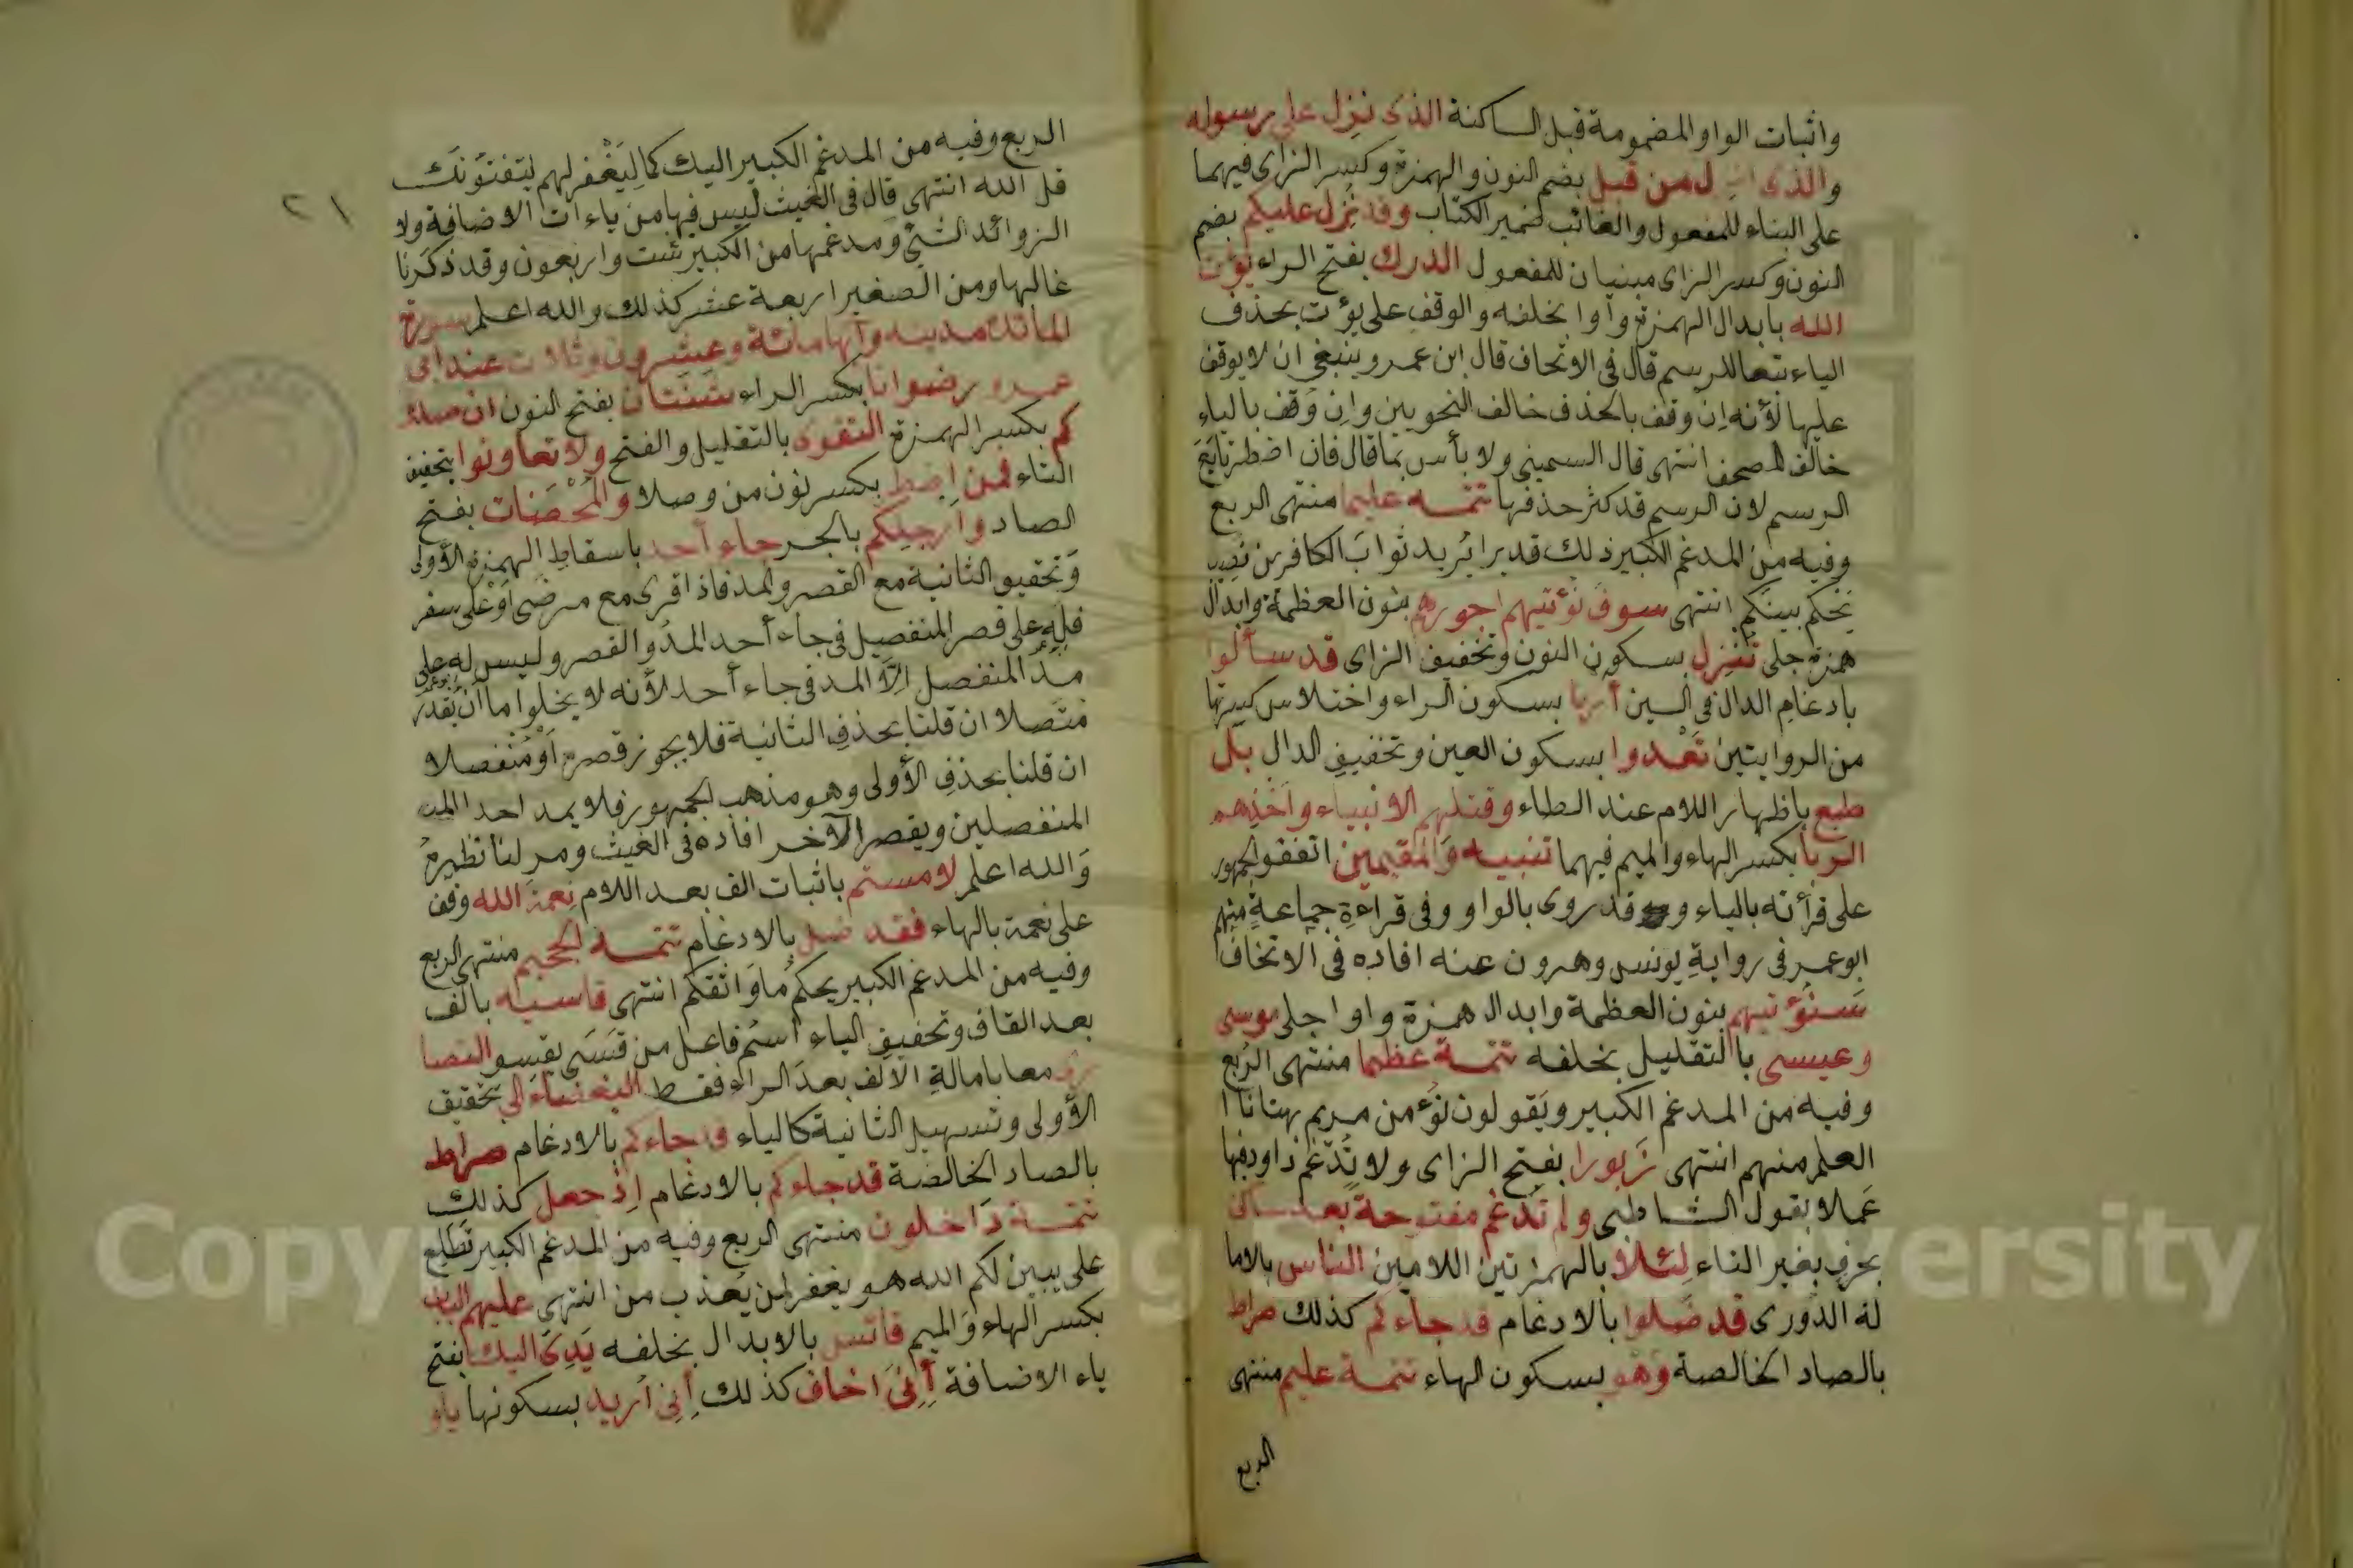 واثبات الواو المضمومة قبل الساكنة الذى نزل على رسوله
والذى انزل من قبل بضم النون والهمزة وكسر الزاى فيهما
على البناء للمفعول والغائب ضمير الكتاب وقد نزل عليكم بضم
النون وكسر الزاى مبنيان للمفعول الدرك بفتح الراء يؤت
الله بابدال الهمزة واوا بخلفه والوقف على يؤت بحذف
الياء تبعا للرسم قال فى الاتحاف قال ابن عمرو ينبغى ان لا يوقف
عليها لأنه إن وقف بالحذف خالف النحويين وإن وقف بالياء
خالف المصحف انتهى قال السمينى ولا بأس بما قال فان اضطر تابع
الرسم لان الرسم قد كثر حذفها تتمه عليما منتهى الربع
وفيه من المدغم الكبير ذلك قديرا يريد ثواب الكافرين نصيب
يحكم بينكم انتهى سوف نؤتيهم اجورهم بنون العظمة وابدال
همزة جلى تنزل بسكون النون وتخفيف الزاى قد سألوا
بادغام الدال فى السين أرنا بسكون الراء واختلاس كسرتها
من الروايتين تعدوا بسكون العين وتخفيف الدال بل
طبع باظهار اللام عند الطاء وقتلهم الانبياء واخذهم
الربا بكسر الهاء والميم فيهما تنبيه والمقيمين اتفقو الجمهور
على قرأته بالياء وقد روى بالواو وفى قراءة جماعة منهم
ابو عمر فى رواية يونس وهرون عنه افاده فى الاتحاف
سنؤتيهم بنون العظمة وابدال همزة واوا جلى موسى
وعيسى بالتقليل بخلفه تتمة عظيما منتهى الربع
وفيه من المدغم الكبير ويقولون نؤمن مريم بهتانا ا
العلم منهم انتهى زبورا بفتح الزاى ولا تدغم داود فيها
عملا بقول الشاطبى ولم تدغم مفتوحة بعد ساكن
بحرف بغير التاء لئلا بالهمز بين اللامين الناس بالاما
لة الدورى قد ضلوا بالادغام قد جاءكم كذلك صراط
بالصاد الخالصة وهو بسكون الهاء تتمة عليم منتهى
الربع
٢١
الربع وفيه من المدغم الكبير اليك كما ليغفر لهم يستفتونك
قل الله انتهى قال فى الغيث ليس فيها من ياءات الاضافة ولا
الزوائد الشئ ومدغمها من الكبير ست واربعون وقد ذكرنا
غالبها ومن الصغير اربعة عشر كذلك والله اعلم سورة
المائدة مدنيه وآيها مائة وعشرون وثلاث عند ابى
عمرو رضوانا بكسر الراء شنئان بفتح النون ان صدو
كم بكسر الهمزة التقوى بالتقليل والفتح ولا تعاونوا بتخفيف
التاء فمن اضطر بكسر نون من وصلا والمحصنات بفتح
الصاد وارجلكم بالجر جاء أحد باسقاط الهمزة الأولى
وتحقيق الثانية مع القصر والمد فاذا قرى مع مرضى أو على سفر
فله على قصر المنفصل فى جاء أحد المد والقصر وليس له على
مد المنفصل إلا المد فى جاء أحد لأنه لا يخلوا ما أن يقدر
متصلا ان قلنا بحذف الثانية فلا يجوز قصره أو منفصلا
ان قلنا بحذف الأولى وهو مذهب الجمهور فلا يمد احد
المنفصلين ويقصر الآخر افاده فى الغيث ومر لنا نظيره
والله اعلم لامستم باثبات الف بعد اللام نعمة الله وقف
على نعمة بالهاء فقد ضل بالادغام تتمة الجحيم منتهى الربع
وفيه من المدغم الكبير يحكم ما واثقكم انتهى قاسيه بالف
بعد القاف وتخفيف الياء اسم فاعل من قسى يقسو النصا
رى معا بامالة الالف بعد الراء فقط البغضاء الى بتحقيق
الأولى وتسهيل الثانية كالياء قد جاءكم بالادغام صراط
بالصاد الخالصة قد جاءكم بالادغام إذ جعل كذلك
تتمة داخلون منتهى الربع وفيه من المدغم الكبير تطلع
على يبين لكم الله هو يغفر لمن يعذب من انتهى عليهم الباب
بكسر الهاء والميم فلا تأس بالابدال بخلفه يدى اليك بفتح
ياء الاضافة إنى اخاف كذلك إنى اريد بسكونها
Copyright © King Saud University